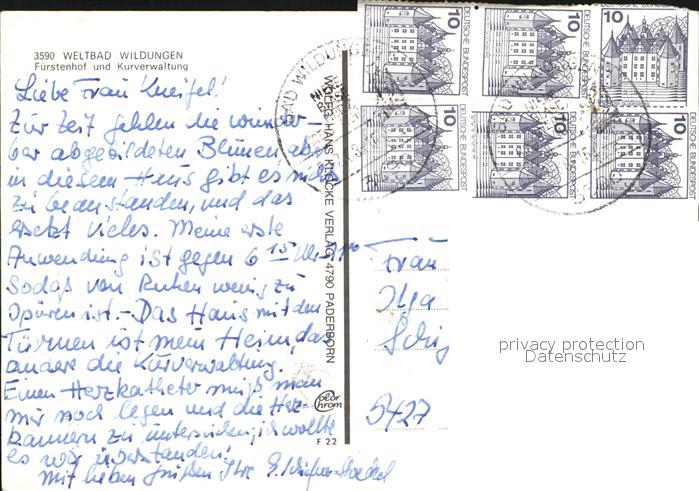 3590 WELTBAD WILDUNGEN
Fürstenhof und Kurverwaltung
Liebe Frau Kneifel!
Zur Zeit fehlen die wunder-
bar abgebildeten Blumen, aber
in diesem Haus gibt es nichts
zu beanstanden, und das
ersetzt vieles. Meine erste
Anwendung ist gegen 6 15 Uhr
Sodaß von Ruhen wenig zu
spüren ist. - Das Haus mit den
Türmen ist mein Heim, das
andere die Kurverwaltung.
Einen Herzkatheter muß man
mir noch legen und die Herz-
kammern zu untersuchen, ich wollte
es wär überstanden!
Mit lieben Grüßen Ihre
WOLFG. HANS KLOCKE VERLAG, 4790 PADERBORN
Color Chrom
F 22
10 DEUTSCHE BUNDESPOST
10 DEUTSCHE BUNDESPOST
10
10 DEUTSCHE BUNDESPOST
10 DEUTSCHE BUNDESPOST
10 DEUTSCHE BUNDESPOST
BAD WILDUNGEN
Frau
Ilga
5427
privacy protection
Datenschutz